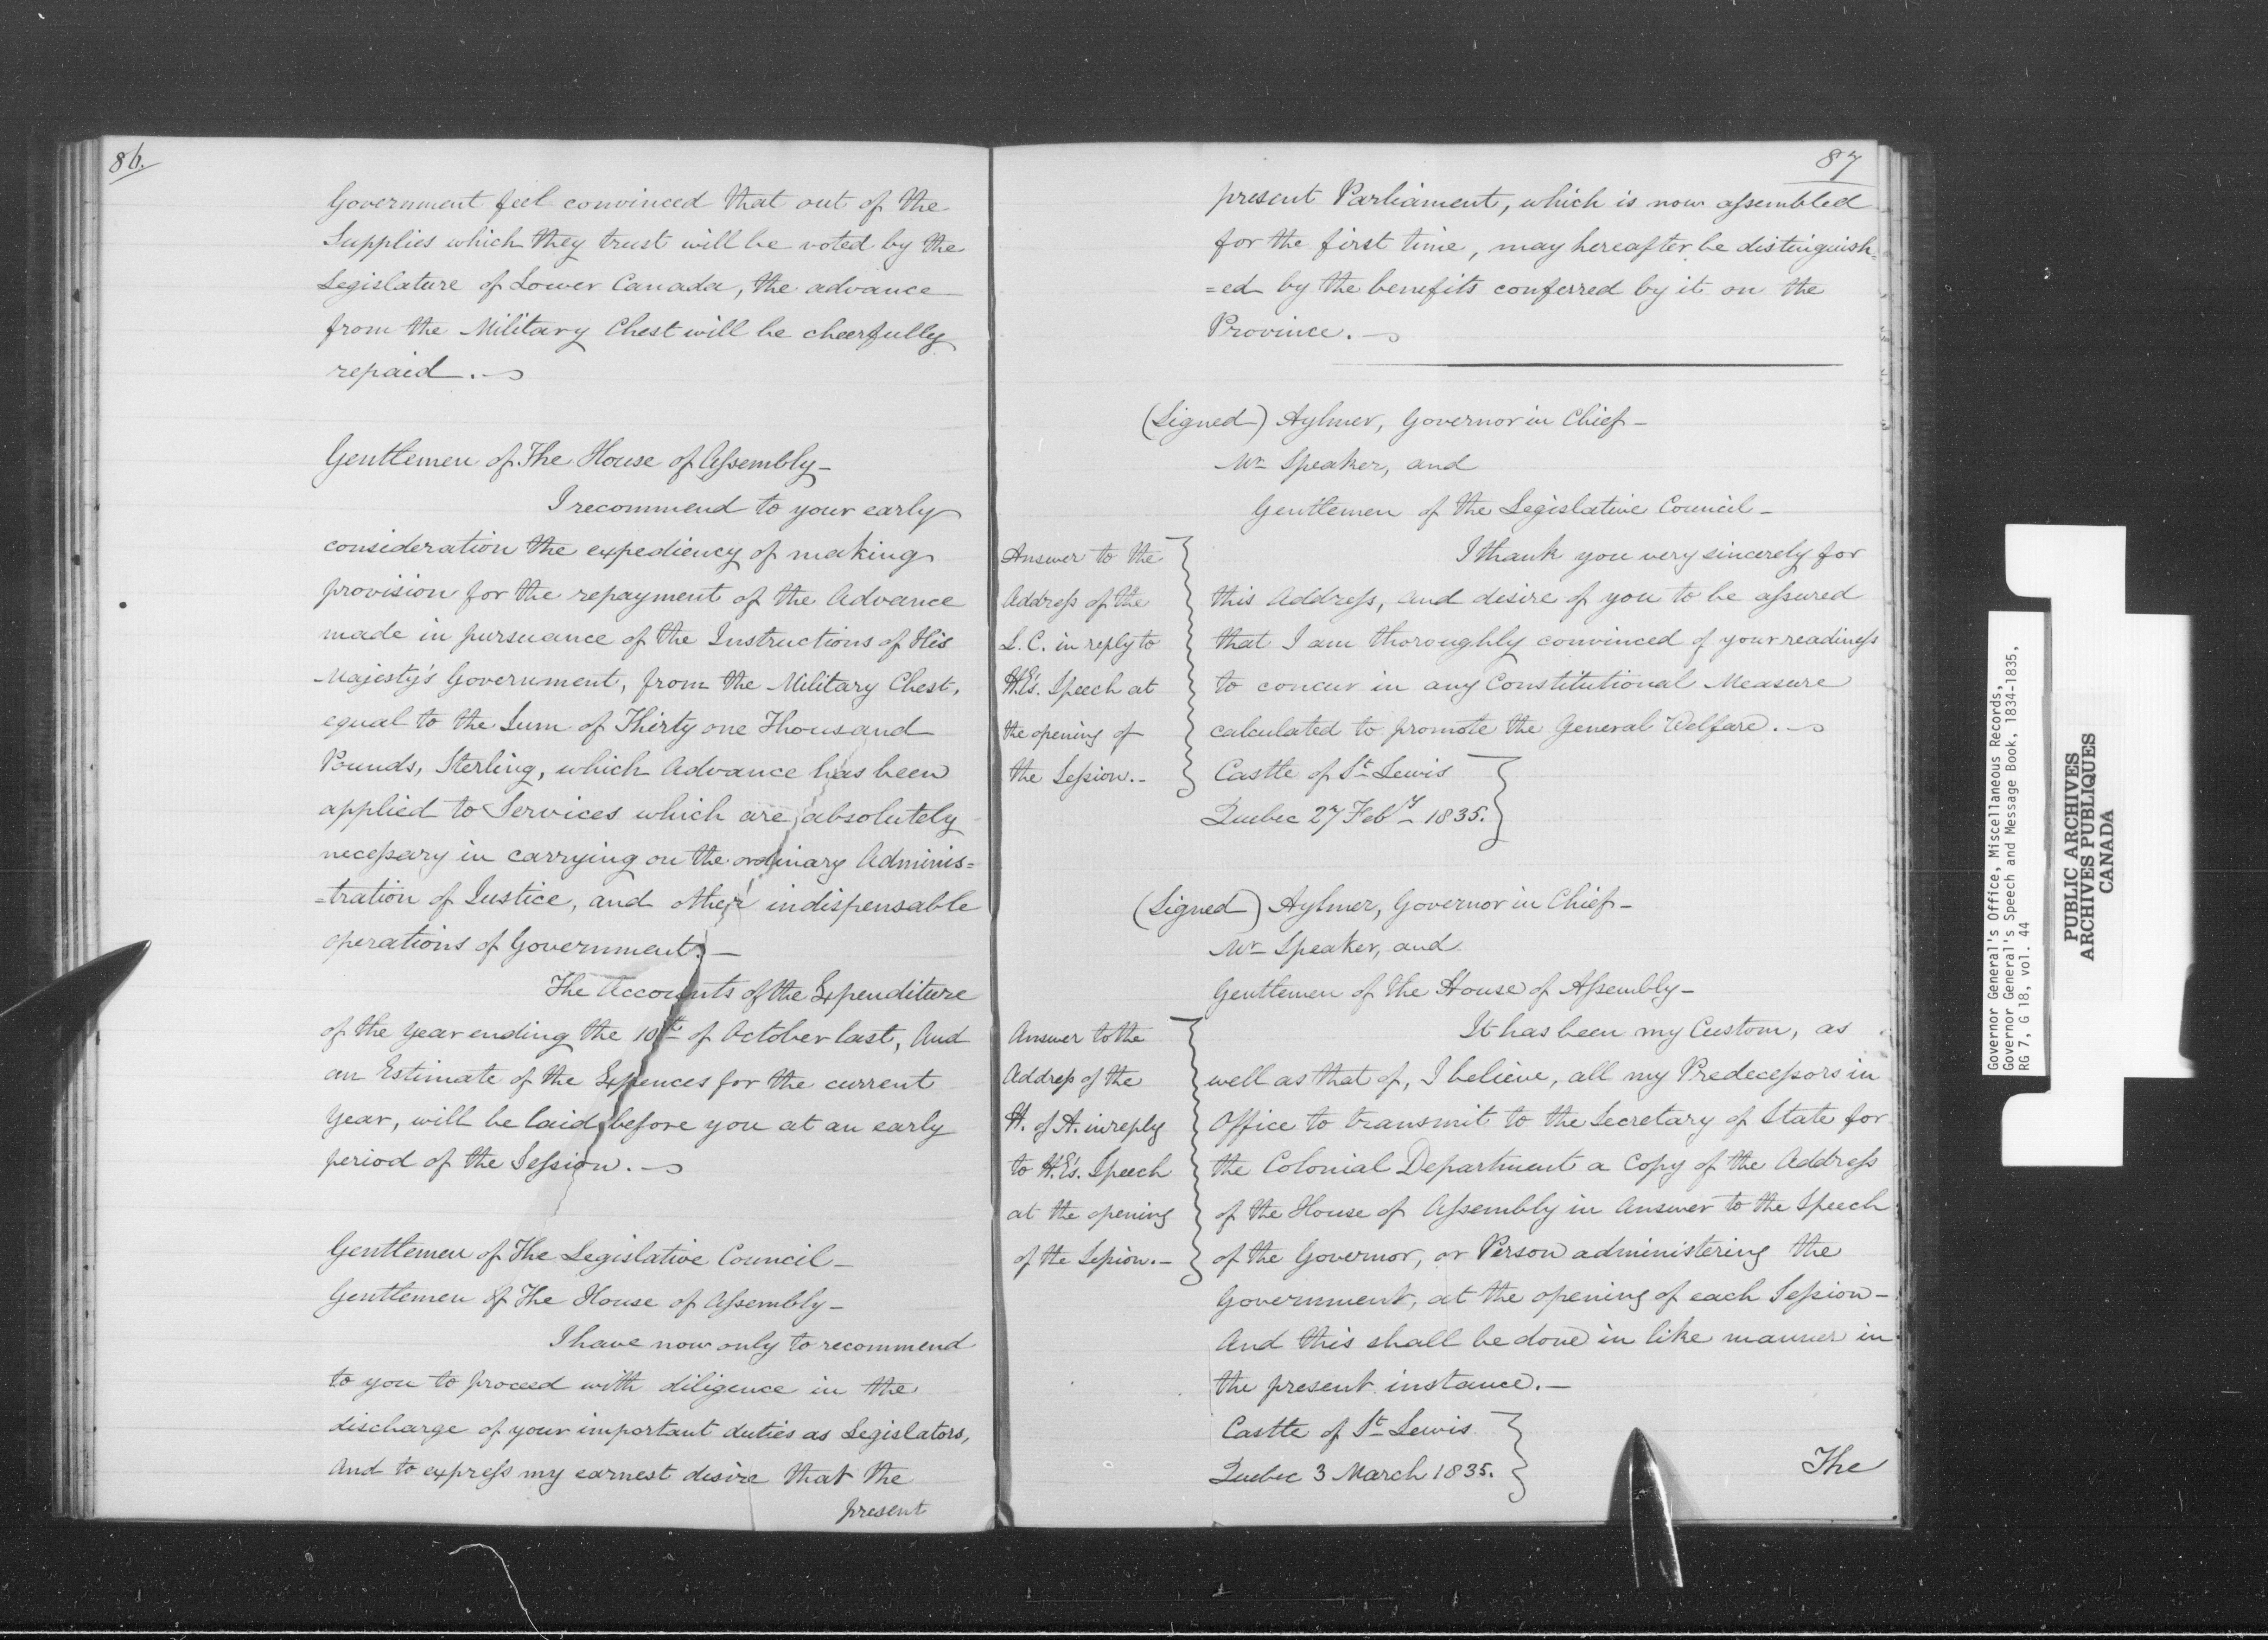 86.
Government feel convinced that out of the
Supplies which they trust will be voted by the
Legislature of Lower Canada, the advance
from the Military Chest will be cheerfully
repaid.
Gentlemen of The House of Assembly—
I recommend to your early
consideration the expediency of making
provision for the repayment of the Advance
made in pursuance of the Instructions of His
Majesty's Government, from the Military Chest,
equal to the Sum of Thirty one Thousand
Pounds, Sterling, which Advance has been
applied to Services which are absolutely
necessary in carrying on the ordinary Adminis=
=tration of Justice, and other indispensable
operations of Government.—
The Accounts of the Expenditure
of the Year ending the 10th of October last, And
an Estimate of the Expences for the current
Year, will be laid before you at an early
period of the Session.
Gentlemen of The Legislative Council—
Gentlemen of The House of Assembly—
I have now only to recommend
to you to proceed with diligence in the
discharge of your important duties as Legislators,
And to express my earnest desire that the
present
87
present Parliament, which is now assembled
for the first time, may hereafter be distinguish=
=ed by the benefits conferred by it on the
Province.
(Signed) Aylmer, Governor in Chief—
Mr Speaker, and
Gentlemen of the Legislative Council—
Answer to the
Address of the
L. C. in reply to
H.E's. Speech at
the opening of
the Session.—
I thank you very sincerely for
this Address, and desire of you to be assured
that I am thoroughly convinced of your readiness
to concur in any Constitutional Measure
calculated to promote the General Welfare.
Castle of St Lewis
Quebec 27 Feby 1835.
(Signed) Aylmer, Governor in Chief—
Mr Speaker, and
Gentlemen of the House of Assembly—
Answer to the
Address of the
H. of A. in reply
to H.E's. Speech
at the opening
of the Session.—
It has been my Custom, as
well as that of, I believe, all my Predecessors in
Office to transmit to the Secretary of State for
the Colonial Department a Copy of the Address
of the House of Assembly in Answer to the Speech
of the Governor, or Person administering the
Government, at the opening of each Session—
And this shall be done in like manner in
the present instance.—
Castle of St Lewis
Quebec 3 March 1835.
The
Governor General's Office, Miscellaneous Records,
Governor General's Speech and Message Book, 1834-1835,
RG 7, G 18, vol. 44
PUBLIC ARCHIVES
ARCHIVES PUBLIQUES
CANADA